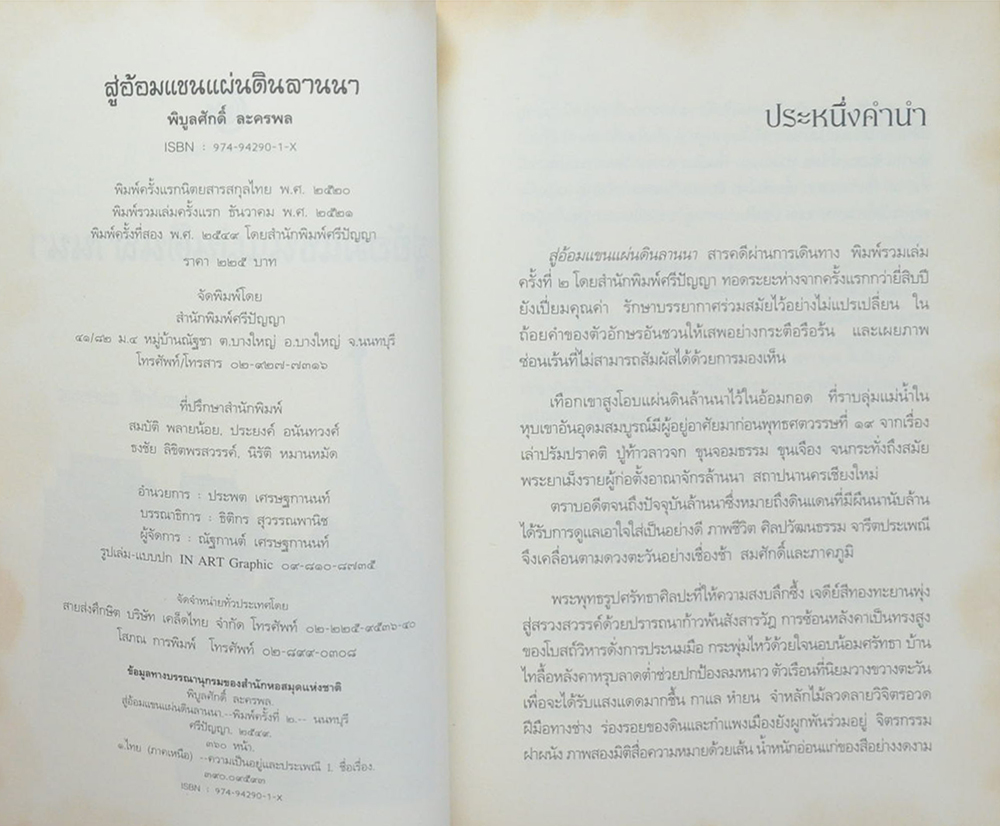 สู่อ้อมแขนแผ่นดินลานนา
พิบูลศักดิ์ ละครพล
ISBN : 974-94290-1-X
พิมพ์ครั้งแรกนิตยสารสกุลไทย พ.ศ. ๒๕๒๐
พิมพ์รวมเล่มครั้งแรก ธันวาคม พ.ศ. ๒๕๒๑
พิมพ์ครั้งที่สอง พ.ศ. ๒๕๔๙ โดยสำนักพิมพ์ศรีปัญญา
ราคา ๒๒๕ บาท
จัดพิมพ์โดย
สำนักพิมพ์ศรีปัญญา
๔๑/๘๒ ม.๔ หมู่บ้านณัฐชา ต.บางใหญ่ อ.บางใหญ่ จ.นนทบุรี
โทรศัพท์/โทรสาร ๐๒-๙๒๗-๗๓๑๖
ที่ปรึกษาสำนักพิมพ์
สมบัติ พลายน้อย, ประยงค์ อนันทวงศ์
ธงชัย ลิขิตพรสวรรค์, นิรัติ หมานหมัด
อำนวยการ : ประพต เศรษฐกานนท์
บรรณาธิการ : ธิติกร สุวรรณพานิช
ผู้จัดการ : ณัฐกานต์ เศรษฐกานนท์
รูปเล่ม-แบบปก IN ART Graphic ๐๙-๘๑๐-๘๗๓๕
จัดจำหน่ายทั่วประเทศโดย
สายส่งศึกษิต บริษัท เคล็ดไทย จำกัด โทรศัพท์ ๐๒-๒๒๕-๙๕๓๖-๔๐
โสภณ การพิมพ์ โทรศัพท์ ๐๒-๘๙๙-๐๓๐๘
ข้อมูลทางบรรณานุกรมของสำนักหอสมุดแห่งชาติ
พิบูลศักดิ์ ละครพล.
สู่อ้อมแขนแผ่นดินลานนา.--พิมพ์ครั้งที่ ๒.-- นนทบุรี
ศรีปัญญา, ๒๕๔๙.
๓๖๐ หน้า.
๑.ไทย (ภาคเหนือ) --ความเป็นอยู่และประเพณี I. ชื่อเรื่อง.
๓๙๐.๐๙๕๙๓
ISBN : 974-94290-1-X
ประหนึ่งคำนำ
สู่อ้อมแขนแผ่นดินลานนา สารคดีผ่านการเดินทาง พิมพ์รวมเล่ม
ครั้งที่ ๒ โดยสำนักพิมพ์ศรีปัญญา ทอดระยะห่างจากครั้งแรกกว่ายี่สิบปี
ยังเปี่ยมคุณค่า รักษาบรรยากาศร่วมสมัยไว้อย่างไม่แปรเปลี่ยน ใน
ถ้อยคำของตัวอักษรอันชวนให้เสพอย่างกระตือรือร้น และเผยภาพ
ซ่อนเร้นที่ไม่สามารถสัมผัสได้ด้วยการมองเห็น
เทือกเขาสูงโอบแผ่นดินล้านนาไว้ในอ้อมกอด ที่ราบลุ่มแม่น้ำใน
หุบเขาอันอุดมสมบูรณ์มีผู้อยู่อาศัยมาก่อนพุทธศตวรรษที่ ๑๙ จากเรื่อง
เล่าปรัมปราคติ ปู่ท้าวลาวจก ขุนจอมธรรม ขุนเจือง จนกระทั่งถึงสมัย
พระยาเม็งรายผู้ก่อตั้งอาณาจักรล้านนา สถาปนานครเชียงใหม่
ตราบอดีตจนถึงปัจจุบันล้านนาซึ่งหมายถึงดินแดนที่มีผืนนานับล้าน
ได้รับการดูแลเอาใจใส่เป็นอย่างดี ภาพชีวิต ศิลปวัฒนธรรม จารีตประเพณี
จึงเคลื่อนตามดวงตะวันอย่างเชื่องช้า สมศักดิ์และภาคภูมิ
พระพุทธรูปศรัทธาศิลปะที่ให้ความสงบลึกซึ้ง เจดีย์สีทองทะยานพุ่ง
สู่สรวงสวรรค์ด้วยปรารถนาก้าวพ้นสังสารวัฏ การซ้อนหลังคาเป็นทรงสูง
ของโบสถ์วิหารดั่งการประนมมือ กระพุ่มไหว้ด้วยใจนอบน้อมศรัทธา บ้าน
ไทลื้อหลังคาหรุบลาดต่ำช่วยปกป้องลมหนาว ตัวเรือนที่นิยมวางขวางตะวัน
เพื่อจะได้รับแสงแดดมากขึ้น กาแล หำยน จำหลักไม้ลวดลายวิจิตรอวด
ฝีมือทางช่าง ร่องรอยของดินและกำแพงเมืองยังผูกพันร่วมอยู่ จิตรกรรม
ฝาผนัง ภาพสองมิติสื่อความหมายด้วยเส้น น้ำหนักอ่อนแก่ของสีอย่างงดงาม